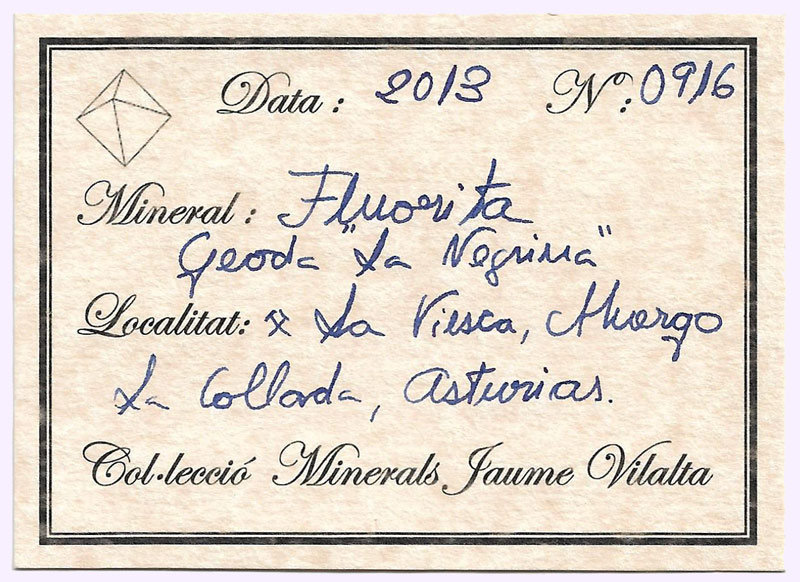 Data : 2013 Nº: 0916
Mineral : Fluorita
Geoda "La Negrina"
Localitat: ⚒ La Viesca, Huergo
La Collada, Asturias.
Col·lecció Minerals Jaume Vilalta